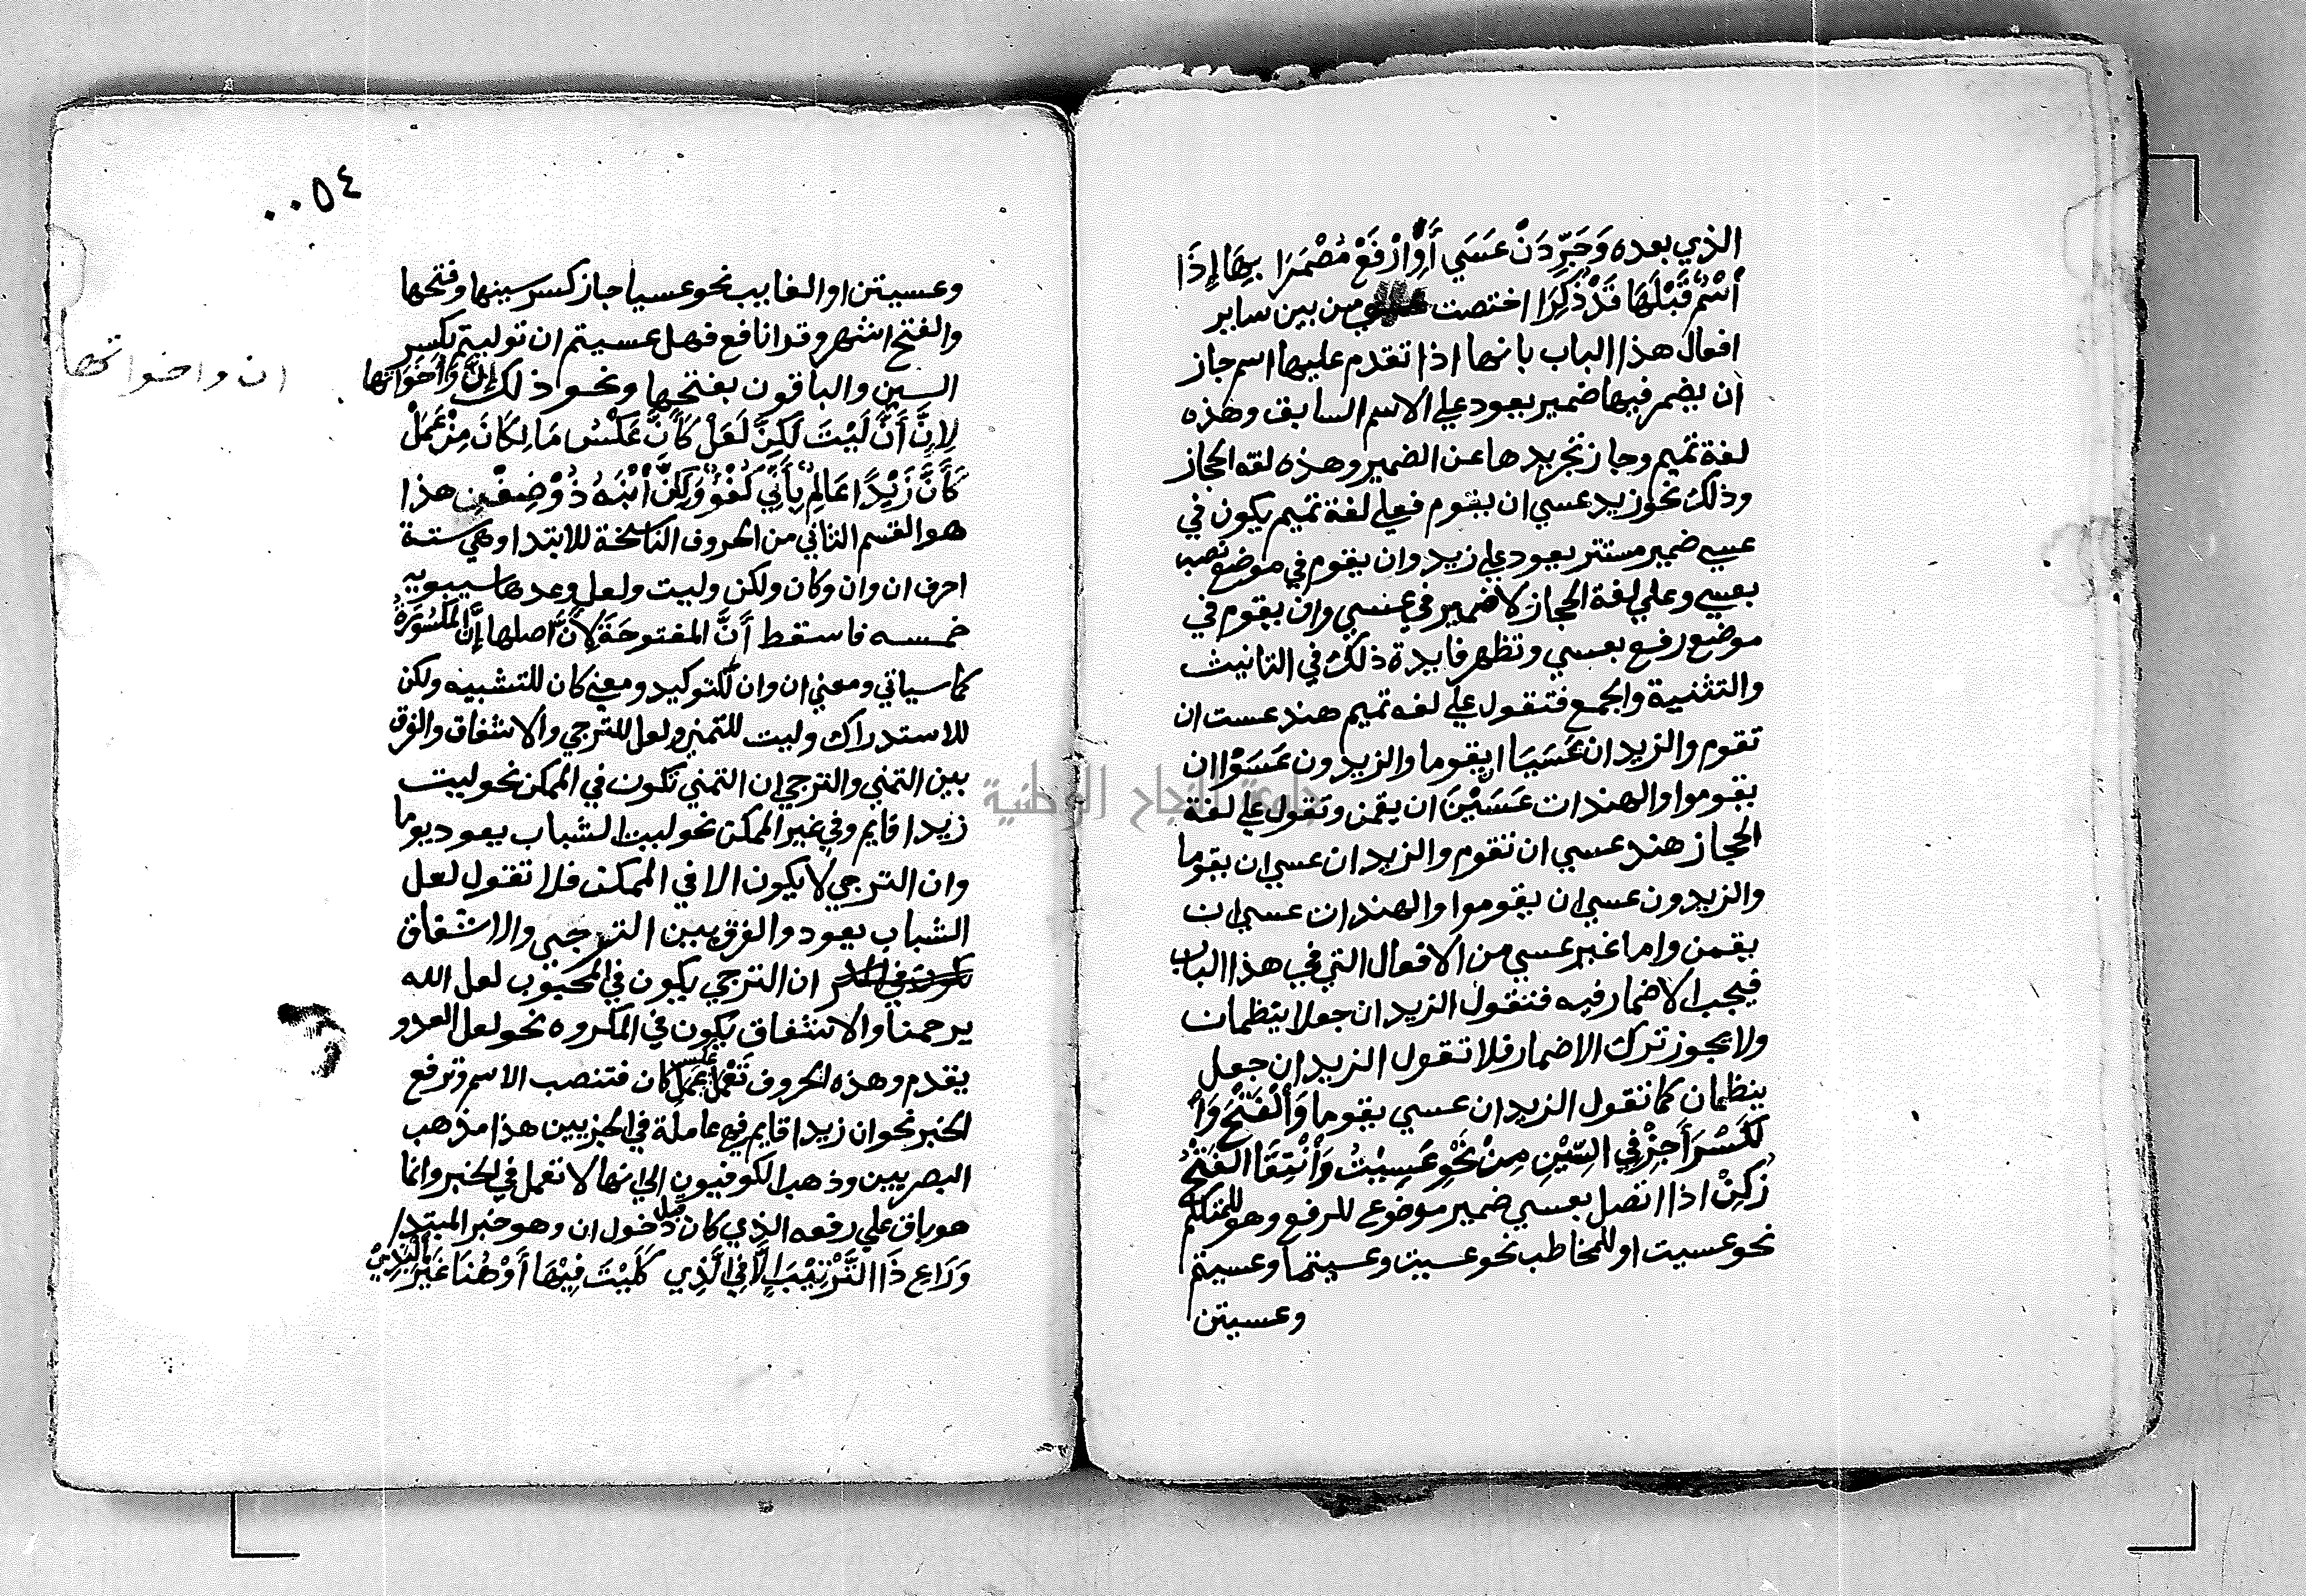 الذي بعده وَجَرِّدَنْ عَسَي أَوِارْفَعْ مُضْمَرَا بِهَا إِذَا
أسْمٌ قَبْلَهَا قَدْ ذُكِرَا اختصت عسي من بين ساير
افعال هذا الباب بانها اذا تقدم عليها اسم جاز
أن يضمر فيها ضمير يعود علي الاسم السابق وهذه
لغة تميم وجاز تجريدها عن الضمير وهذه لغه الحجاز
وذلك نحو زيد عسي ان يقوم فعلي لغة تميم يكون في
عسي ضمير مستتر يعود علي زيد وان يقوم في موضع نصب
بعسي وعلي لغة الحجاز لا ضمير في عسي وان يقوم في
موضع رفع بعسي وتظهر فايدة ذلك في التانيث
والتثنية والجمع فتقول علي لغه تميم هند عست ان
تقوم والزيدان عَسَيَا ان يقوما والزيدون عَسَوْا ان
يقوموا والهندات عَسَيْنَ ان يقمن وتقول علي لغة
الحجاز هند عسي ان تقوم والزيدان عسي ان يقوما
والزيدون عسي ان يقوموا والهندات عسي ان
يقمن واما غير عسي من الافعال التي في هذا الباب
فيجب الاضمار فيه فتقول الزيدان جعلا ينظمان
ولا يجوز ترك الاضمار فلا تقول الزيدان جعل
ينظمان كما تقول الزيدان عسي يقوما وَأَلْفَتْحَ وَاْ
لْكَسْرَ أَجِزْ فِي السِّيْنِ مِنْ نَحْوِ عَسِيْتُ وَأَنْتِقَا الفَتْحِ
زُكِنْ اذا اتصل بعسي ضمير موضوع للرفع وهو للمتكلم
نحو عسيت او للمخاطب نحو عسيت وعسيتما وعسيتم
وعسيتن
٠٠٥٤
وعسيتن او الغايب نحو عسيا جاز كسر سينها وفتحها
والفتح اشهر وقرا نافع فهل عسيتم ان توليتم بكسر
السين والباقون بفتحها ونحو ذلك إِنَّ وَأَخَوَاتُهَا
ان واخواتها
لِإِنَّ أَنَّ لَيْتَ لَكِنَّ لَعَلْ كَأَنَّ عَكْسُ مَا لِكَانَ مِنْ عَمَلْ
كَأَنَّ زَيْدًا عَالِمٌ بِأَنِّي كُفْؤٌ وَلَكِنَّ أبْنَهُ ذُوْ ضِغْنِ هذا
هو القسم الثاني من الحروف الناسخة للابتدا وهي ستة
احرف ان وان وكان ولكن وليت ولعل وعدها سيبويه
خمسه فاسقط أَنَّ المفتوحَةَ لِأَنَّ اصلها إِنَّ المَكْسُوْرَةُ
كما سياتي ومعني ان وان للتوكيد ومعني كان للتشبيه ولكن
للاستدراك وليت للتمني ولعل للترجي والاشفاق والفرق
بين التمني والترجي ان التمني تكون في الممكن نحو ليت
زيدا قايم وفي غير الممكن نحو ليت الشباب يعود يوما
وان الترجي لا يكون الا في الممكن فلا تقول لعل
الشباب يعود والفرق بين الترجي والاشفاق
ان الترجي يكون في المحبوب لعل الله
يرحمنا والاشفاق يكون في المكروه نحو لعل العدو
يقدم وهذه الحروف تَعْمَلُ عكس عَمَلِ كان فتنصب الاسم وترفع
الخبر نحو ان زيدا قايم فهي عاملة في الجزيين هذا مذهب
البصريين وذهب الكوفيون الي انها لا تعمل في الخبر وانما
هو باق علي رفعه الذي كان قبل دخول ان وهو خبر المبتدا
وَرَاعِ ذَا التَّرْتِيْبَ إِلَّا فِي الَّذِي كَلَيْتَ فِيْهَا أَوْ هُنَا غَيْرَ الْبَذِيْ
جامعة النجاح الوطنية